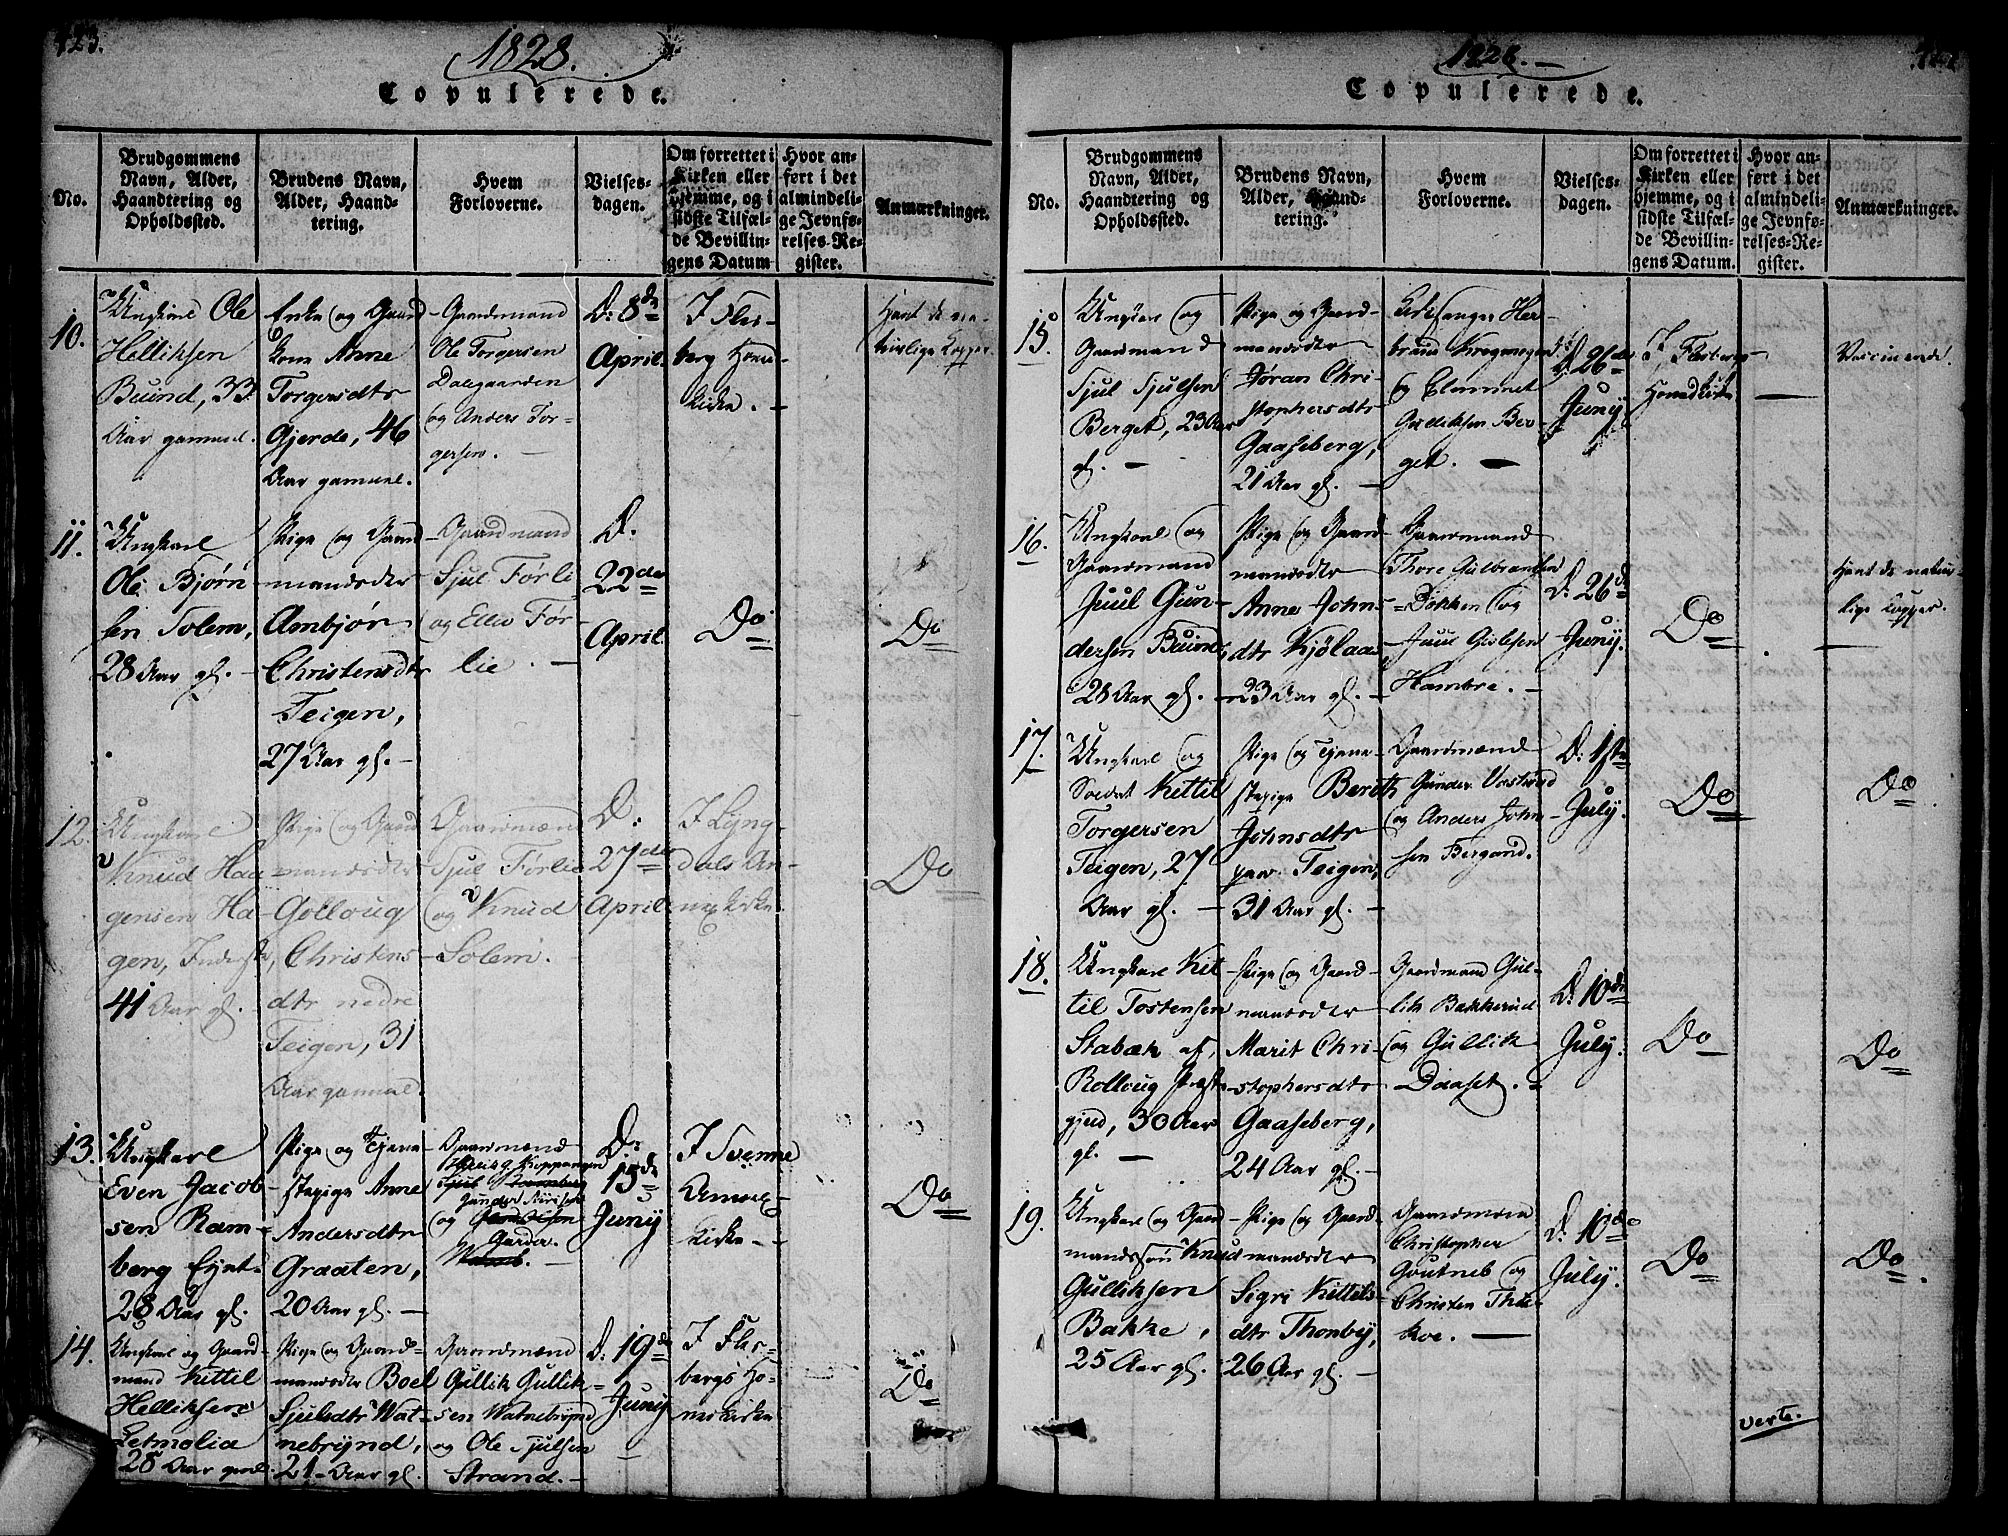 423.
1828.
Copulerede.
No.
Brudgommens
Navn, Alder,
Haandtering og
Opholdssted.
Brudens Navn,
Alder, Haand-
tering.
Hvem
Forloverne.
Vielses-
dagen.
Om forrettet i
Kirken eller
hjemme, og i
sidste Tilfæl-
de Bevillin-
gens Datum
Hvor an-
ført i det
almindeli-
ge Jevnfø-
relses-Re-
gister.
Anmærkninger.
10.
Ungkarl Ole
Helliksen
Buind, 33
Aar gammel.
Enke og Gaard
kone Anne
Torgersdtr
Gjerde, 46
Aar gammel.
Gaardmand
Ole Torgersen
Dalegaarden
og Anders Tor-
gersen. —
D: 8de
April.
I Fles-
berg Hoved-
kirke. —
Havt de na-
turlige Kopper
11.
Ungkarl
Ole Bjørn
sen Solem,
28 Aar gl. —
Pige og Gaard
mandsdtr
Ambjør
Christensdtr
Teigen,
27 Aar gl. —
Gaardmænd
Sjul Førli
og Ellev Før-
lie. —
D.
22de
April
Do
Do
12.
Ungkarl
Knud Haa
gensen Ha-
gen, Inderste,
41 Aar gl. —
Pige og Gaard
mandsdtr
Golloug
Christens-
dtr nedre
Teigen, 31
Aar gammel.
Gaardmænd
Sjul Førlie
og Knud
Solem.
D:
27de
April.
I Lyng-
dals An-
nexkirke.
Do
13.
Ungkarl
Even Jacob
sen Ram-
berg Eynt.
28 Aar gl.
Pige og Tjene
stepige Anne
Andersdtr
Graaten,
20 Aar gl. —
Gaardmænd
Koppangen
Gunder
og
Garder.
D:
15de
Juny
I Svenne
Annex-
kirke —
Do
14.
Ungkarl og Gaard
mand Kittil
Helliksen
Letmolia
28 Aar gml.
Pige og Gaard-
mandsdtr Boel
Sjulsdtr Wat-
nebrynd,
21 Aar gl.
Gaardmænd
Gullik Gullik-
sen Watnebrynd
og Ole Sjulsen
Strand. —
D. 19de
Juny
I Fles-
bergs Ho-
vedkirke
Do
1828. —
Copulerede.
No.
Brudgommens
Navn, Alder,
Haandtering og
Opholdssted.
Brudens Navn,
Alder, Haand-
tering.
Hvem
Forloverne.
Vielses-
dagen.
Om forrettet i
Kirken eller
hjemme, og i
sidste Tilfæl-
de Bevillin-
gens Datum.
Hvor an-
ført i det
almindeli-
ge Jevnfø-
relses-Re-
gister.
Anmærkninger.
15.
Ungkarl og
Gaardmand
Sjul Sjulsen
Berget, 23 Aar
gl. —
Pige og Gaard-
mandsdtr
Jøran Chri-
stophersdtr
Gaaseberg,
21 Aar gl. —
Kirkesanger Her-
brand
og Clemmet
Gulliksen Ber-
get. —
D: 26de
Juny
I Flesbergs
Hovedkirke
—
Vaccinerede.
16.
Ungkarl og
Gaardmand
Juul Gun-
dersen Buind,
28 Aar gl. —
Pige og Gaard
mandsdtr
Anne Johns-
dtr Kjølaas
23 Aar gl. —
Gaardmænd
Thore Gulbransen
Dokken og
Juul Gislesen
Hambre. —
D: 26de
Juny.
Do
Havt de natur-
lige Kopper.
17.
Ungkarl og
Soldat Kittil
Torgersen
Teigen, 27
Aar gl. —
Pige og Tjene-
stepige Berith
Johnsdtr
Teigen,
31 Aar gl. —
Gaardmænd
Gunder
og Anders John-
sen Bergand.
D: 1ste
July.
Do
Do
18.
Ungkarl Kit
til Tostensen
Stabæk af
Rolloug Præste-
gjeld, 30 Aar
gl. —
Pige og Gaard-
mandsdtr
Marit Chri-
stophersdtr
Gaaseberg,
24 Aar gl. —
Gaardmænd Gul-
lik Bakkerud
og Gullik
Daaset. —
D: 10de
July.
Do
Do
19.
Ungkarl og Gaard
mandssøn Knud
Gulliksen
Bakke,
25 Aar gl.
Pige og Gaard-
mandsdtr
Sigri Kittils-
dtr Thonby,
26 Aar gl. —
Gaardmænd
Christopher
Goutneb og
Christen
D: 10de
July.
Do
Do
verte.